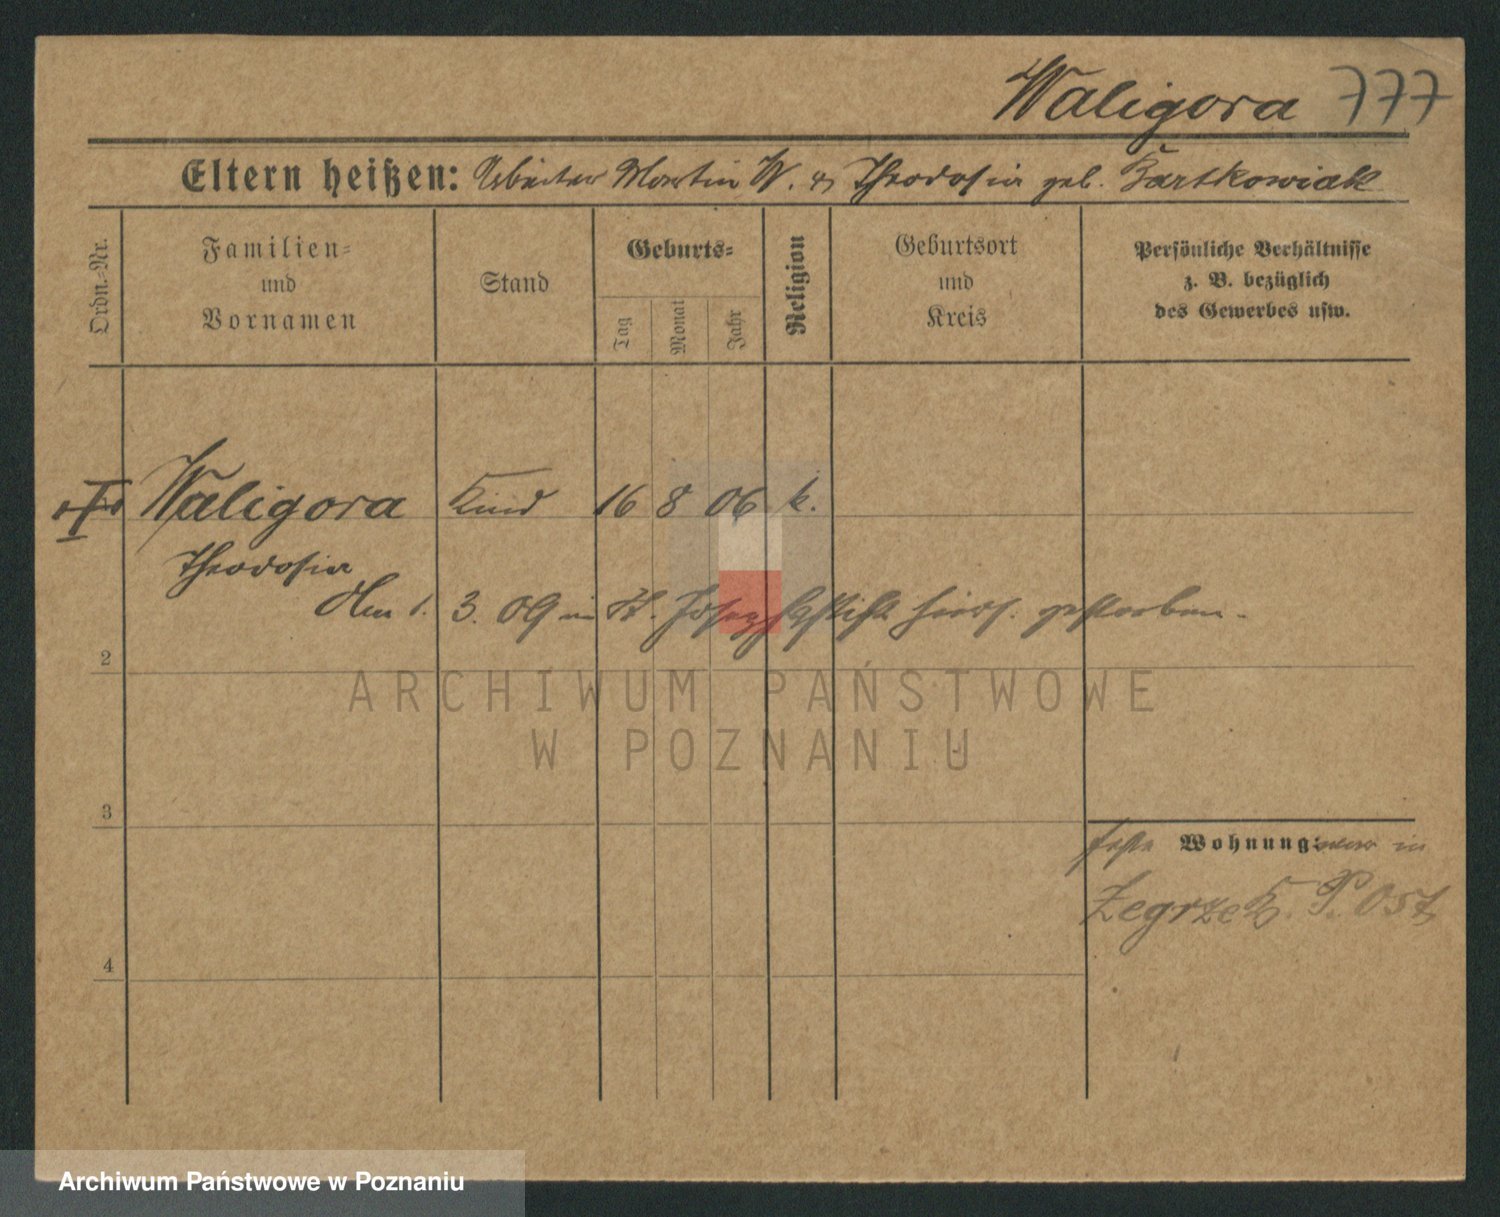 Waligora 777
Eltern heißen: Arbeiter Martin W. & Theodosia geb. Bartkowiak
Ordn.-Nr.
Familien-
und
Vornamen
Stand
Geburts-
Tag
Monat
Jahr
Religion
Geburtsort
und
Kreis
Persönliche Verhältnisse
z. B. bezüglich
des Gewerbes usw.
Waligora Kind 16 8 06 k.
Theodosia
Am 1. 3. 09 im St. Josephstift hiers. gestorben.
2
ARCHIWUM PAŃSTWOWE
W POZNANIU
3
feste Wohnung: war in
Zegrze K. P. Ost
4
Archiwum Państwowe w Poznaniu